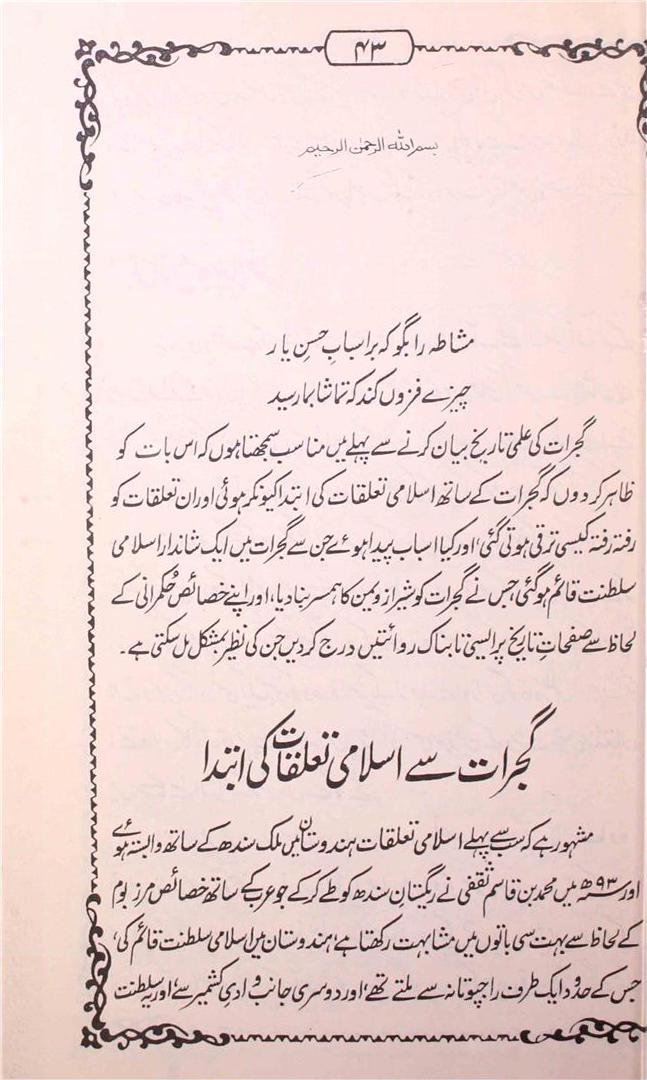 ۴۳
بسم اللہ الرحمٰن الرحیم
مشاطہ را بگو کہ بر اسبابِ حسنِ یار
چیزے فزوں کند کہ تماشا بما رسید
گجرات کی علمی تاریخ بیان کرنے سے پہلے میں مناسب سمجھتا ہوں کہ اس بات کو
ظاہر کر دوں کہ گجرات کے ساتھ اسلامی تعلقات کی ابتدا کیونکر ہوئی اور ان تعلقات کو
رفتہ رفتہ کیسی ترقی ہوتی گئی، اور کیا اسباب پیدا ہوے جن سے گجرات میں ایک شاندار اسلامی
سلطنت قائم ہو گئی جس نے گجرات کو شیراز و یمن کا ہمسر بنا دیا، اور اپنے خصائص حُکمرانی کے
لحاظ سے صفحاتِ تاریخ پر ایسی تابناک روائتیں درج کر دیں جن کی نظیر بمشکل مل سکتی ہے۔
گجرات سے اسلامی تعلقات کی ابتدا
مشہور ہے کہ سب سے پہلے اسلامی تعلقات ہندوستان میں ملک سندھ کے ساتھ وابستہ ہوے
اور ۹۳ھ میں محمد بن قاسم ثقفی نے ریگستانِ سندھ کو طے کر کے جو عرب کے ساتھ خصائص مرز بوم
کے لحاظ سے بہت سی باتوں میں مشابہت رکھتا ہے، ہندوستان میں اسلامی سلطنت قائم کی،
جس کے حدود ایک طرف راجپوتانہ سے ملتے تھے، اور دوسری جانب وادیِ کشمیر سے، اور یہ سلطنت